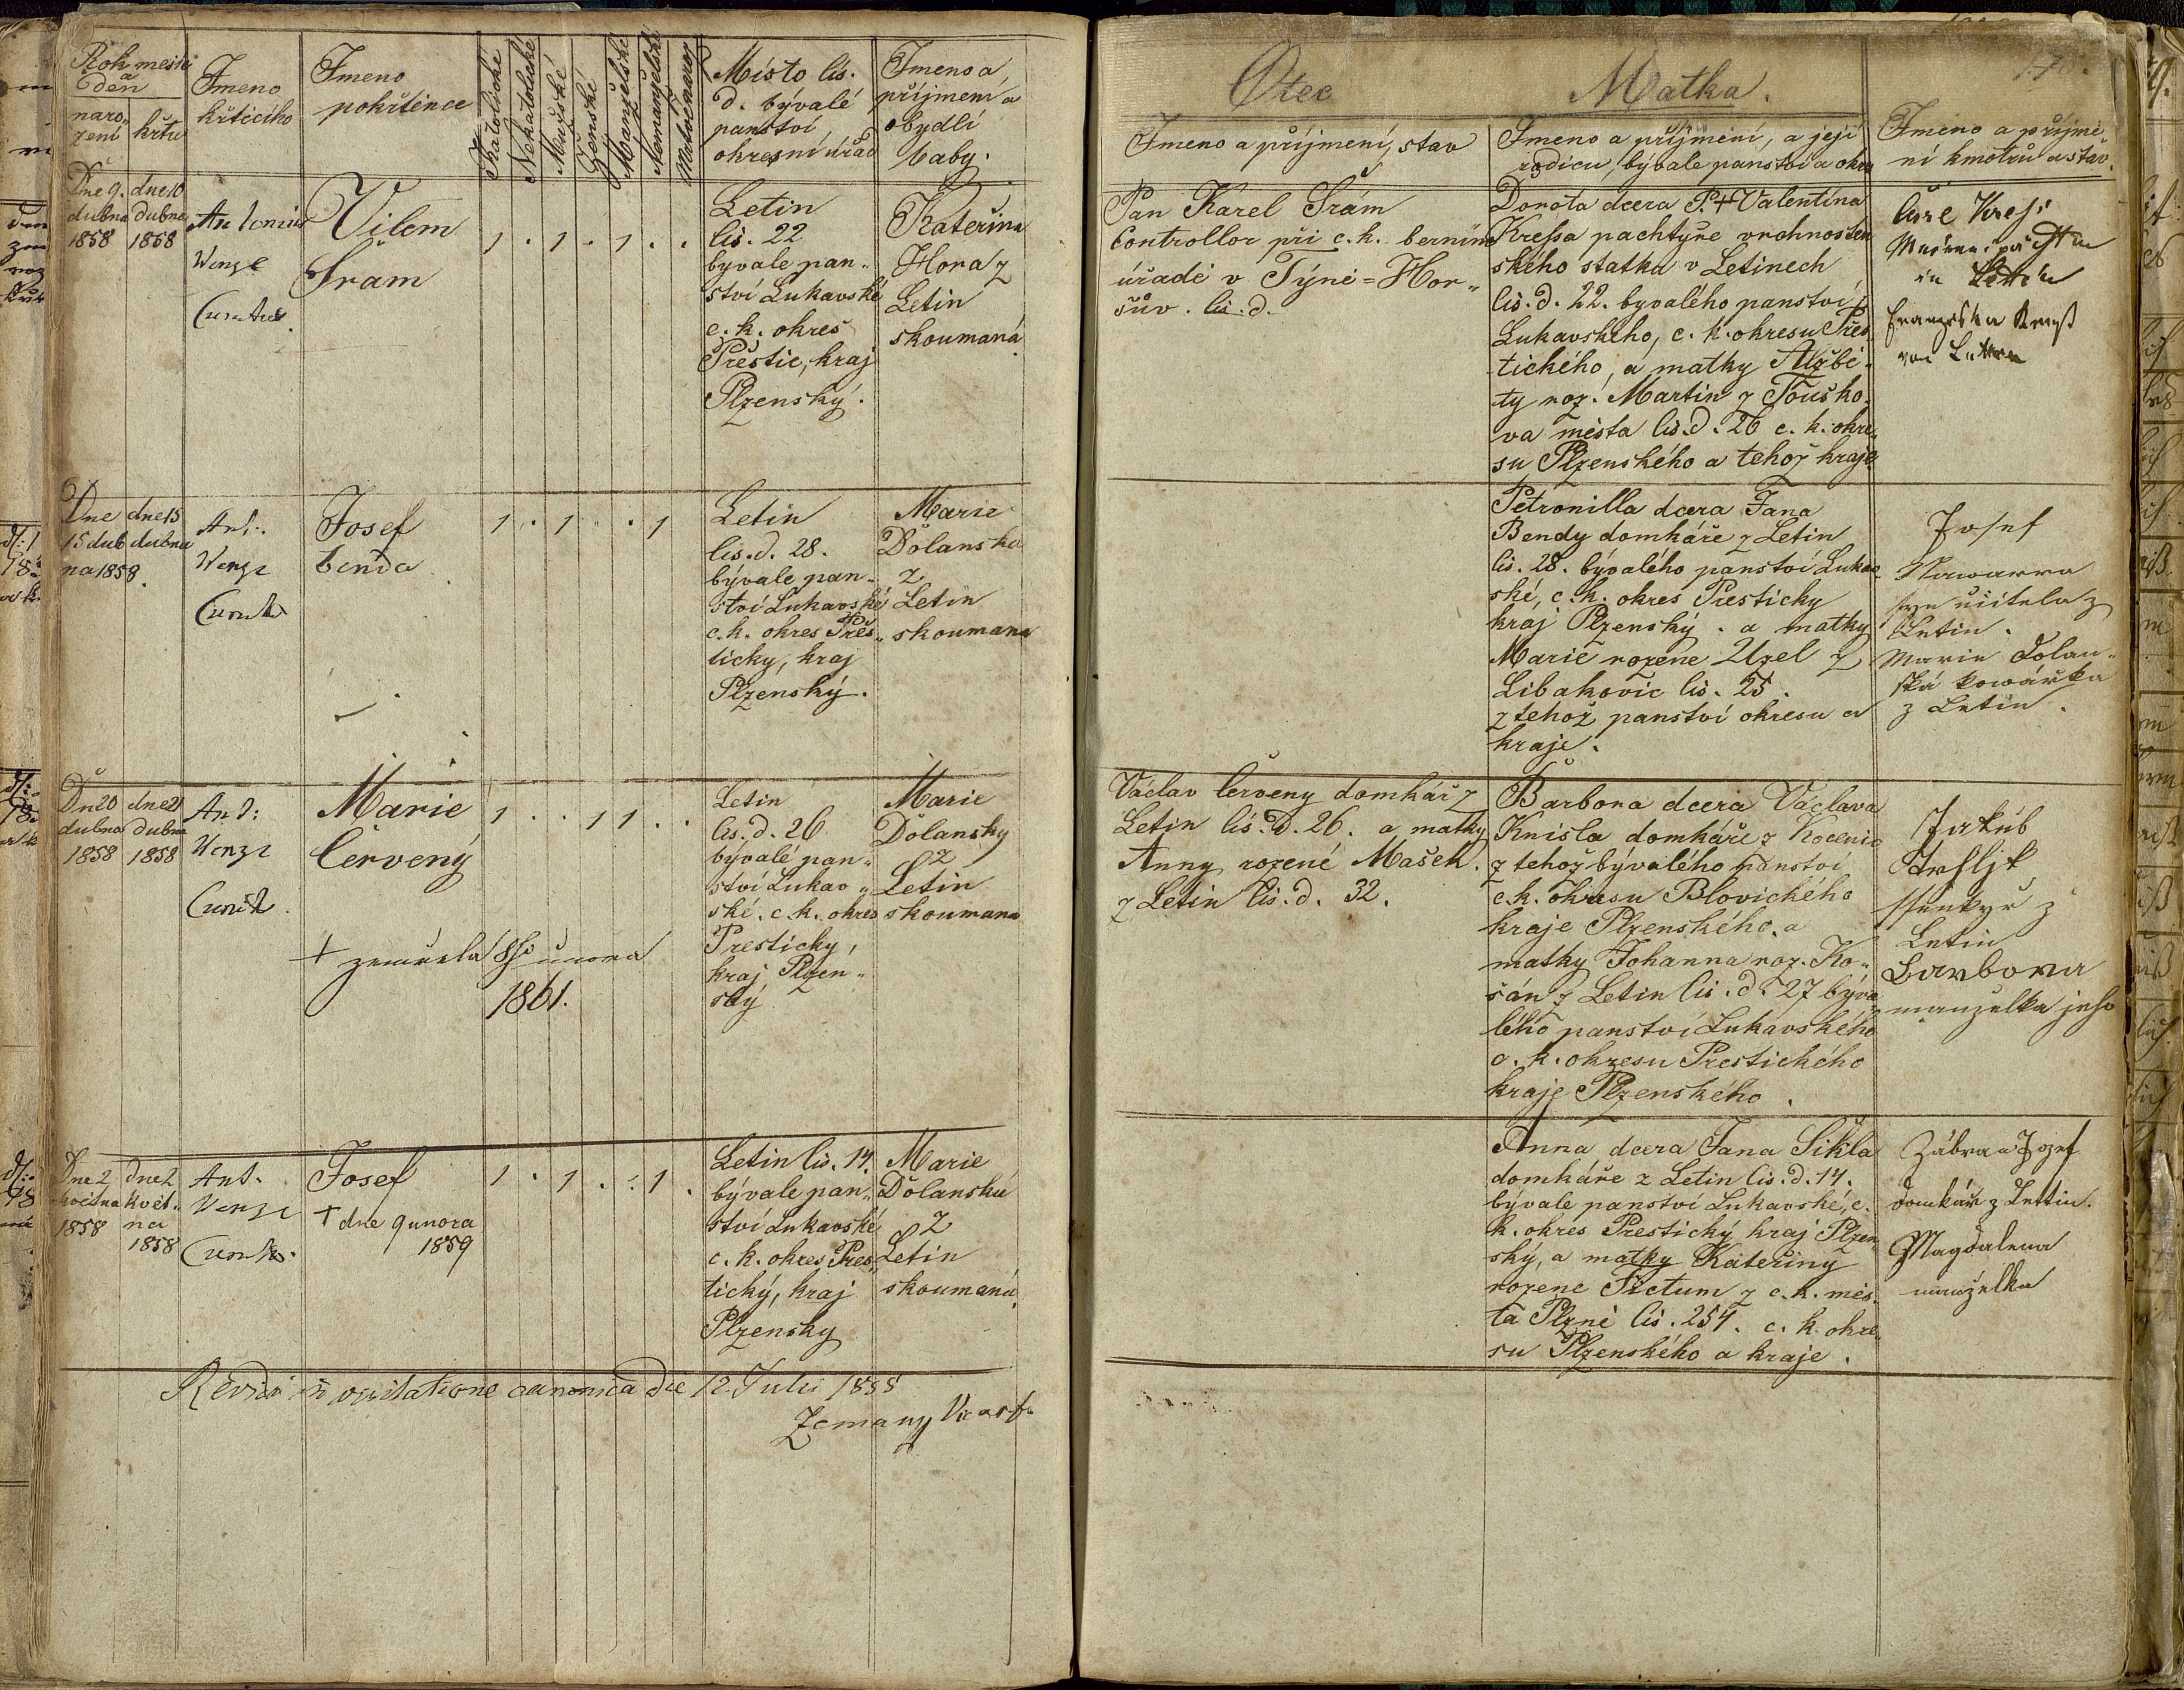 Rok mesic
a
Den
naro-
zení
křtu
Jmeno
křtícího
Jmeno
pokřtěnce
Katolické
Nekatolické
Mužské
Ženské
Manželské
Nemanželské
Mrtvě naroz
Místo čís.
d. bývalé
panství
okresní úřad
Jmeno a
příjmení a
obydlí
baby.
Dne 9.
dubna
1858
dne 10
dubna
1858
Antonín
Wenzl
Curatus
Vilem
Šram
1 . 1 . 1 . .
Letin
čis. 22
byvale pan„
ství Lukavské
c. k. okres
Přestic, kraj
Plzenský.
Kateřina
Hora z
Letin
skoumaná
Dne
15 dub
na 1858.
dne 15
dubna
Ant.
Wenzl
Curat
Josef
benda
1 . 1 . . 1
Letin
čis. d. 28.
bývale pan-
ství Lukavské
c. k. okres Přes„
ticky, kraj
Plzenský.
Marie
Dolanska
z
Letin
skoumana
Dn 20
dubna
1858
dne 21
dubna
1858
Ant:
Wenzl
Curat
Marie
Červený
+ zemřela 8ho unora
1861.
1 . . 1 1 . .
Letin
čis. d. 26
bývalé pan„
ství Lukav„
ské. c. k. okres
Presticky,
kraj Plzen„
ský
Marie
Dolansky
z
Letin
skoumana
Dne 2
května
1858
dne 2
květ„
na
1858
Ant.
Wenzl
Curat.
Josef
+ dne 9 unora
1859
1 . 1 . . 1 .
Letin čis. 14.
bývale pan„
ství Lukavské
c. k. okres Pres„
tický, kraj
Plzensky
Marie
Dolanská
z
Letin
skoumaná
Revidi in visitatione canonica die 12. Julii 1858
Zeman
Otec
Jmeno a příjmení, stav
Matka.
Jmeno a příjmení, a její
rodicu, bývale panství a okre
Jmeno a příjme„
ní kmotrů a stav.
Pan Karel Šrám
Controllor při c. k. berním
úřadě v Týně=Hor„
šův. čis. d.
Dorota dcera P. + Valentina
Kreßa pachtýře vrchnosten
ského statku v Letinech
čis. d. 22. byvalého panství
Lukavského, c. k. okresu Přes„
tického, a matky Alžbě„
ty roz. Martin z Touško„
va města čis. d. 26 c. k. okre„
su Plzenského a tehož kraje
Franziska Kreß
von Lettin
Petronilla dcera Jana
Bendy domkáře z Letin
čis. 28. bývalého panství Lukav„
ské, c. k. okres Presticky
kraj Plzenský. a matky
Marie rozene Uzel z
Libakovic čis. 25.
z tehož panství okresu a
kraje.
Josef
Nawarra
syn učitela z
Letin.
Marie Dolan„
ská kowářka
z Letin.
Václav Červeny domkář z
Letin čis. d. 26. a matky
Anny rozené Mašek.
z Letin čis. d. 32.
Barbora dcera Václava
Knisla domkáře z Kocenic
z tehož bývalého panství
c. k. okresu Blovického
kraje Plzenského, a
matky Johanna roz. Ko„
čán z Letin čis. d. 27 býva
lého panství Lukavského
c. k. okresu Prestického
kraje Plzenského.
Jakub
ssenkyř z
Letin
Barbora
manzelka jeho
Anna dcera Jana Šikla
domkáře z Letin čis. d. 14.
bývale panství Lukavské, c.
k. okres Prestický kraj Plzen„
ský, a matky Kateřiny
rozene Tictum z c. k. měs„
ta Plzně čis. 254. c. k. okre„
su Plzenského a kraje.
Zábran Jozef
domkář z Lettin.
Magdalena
manželka